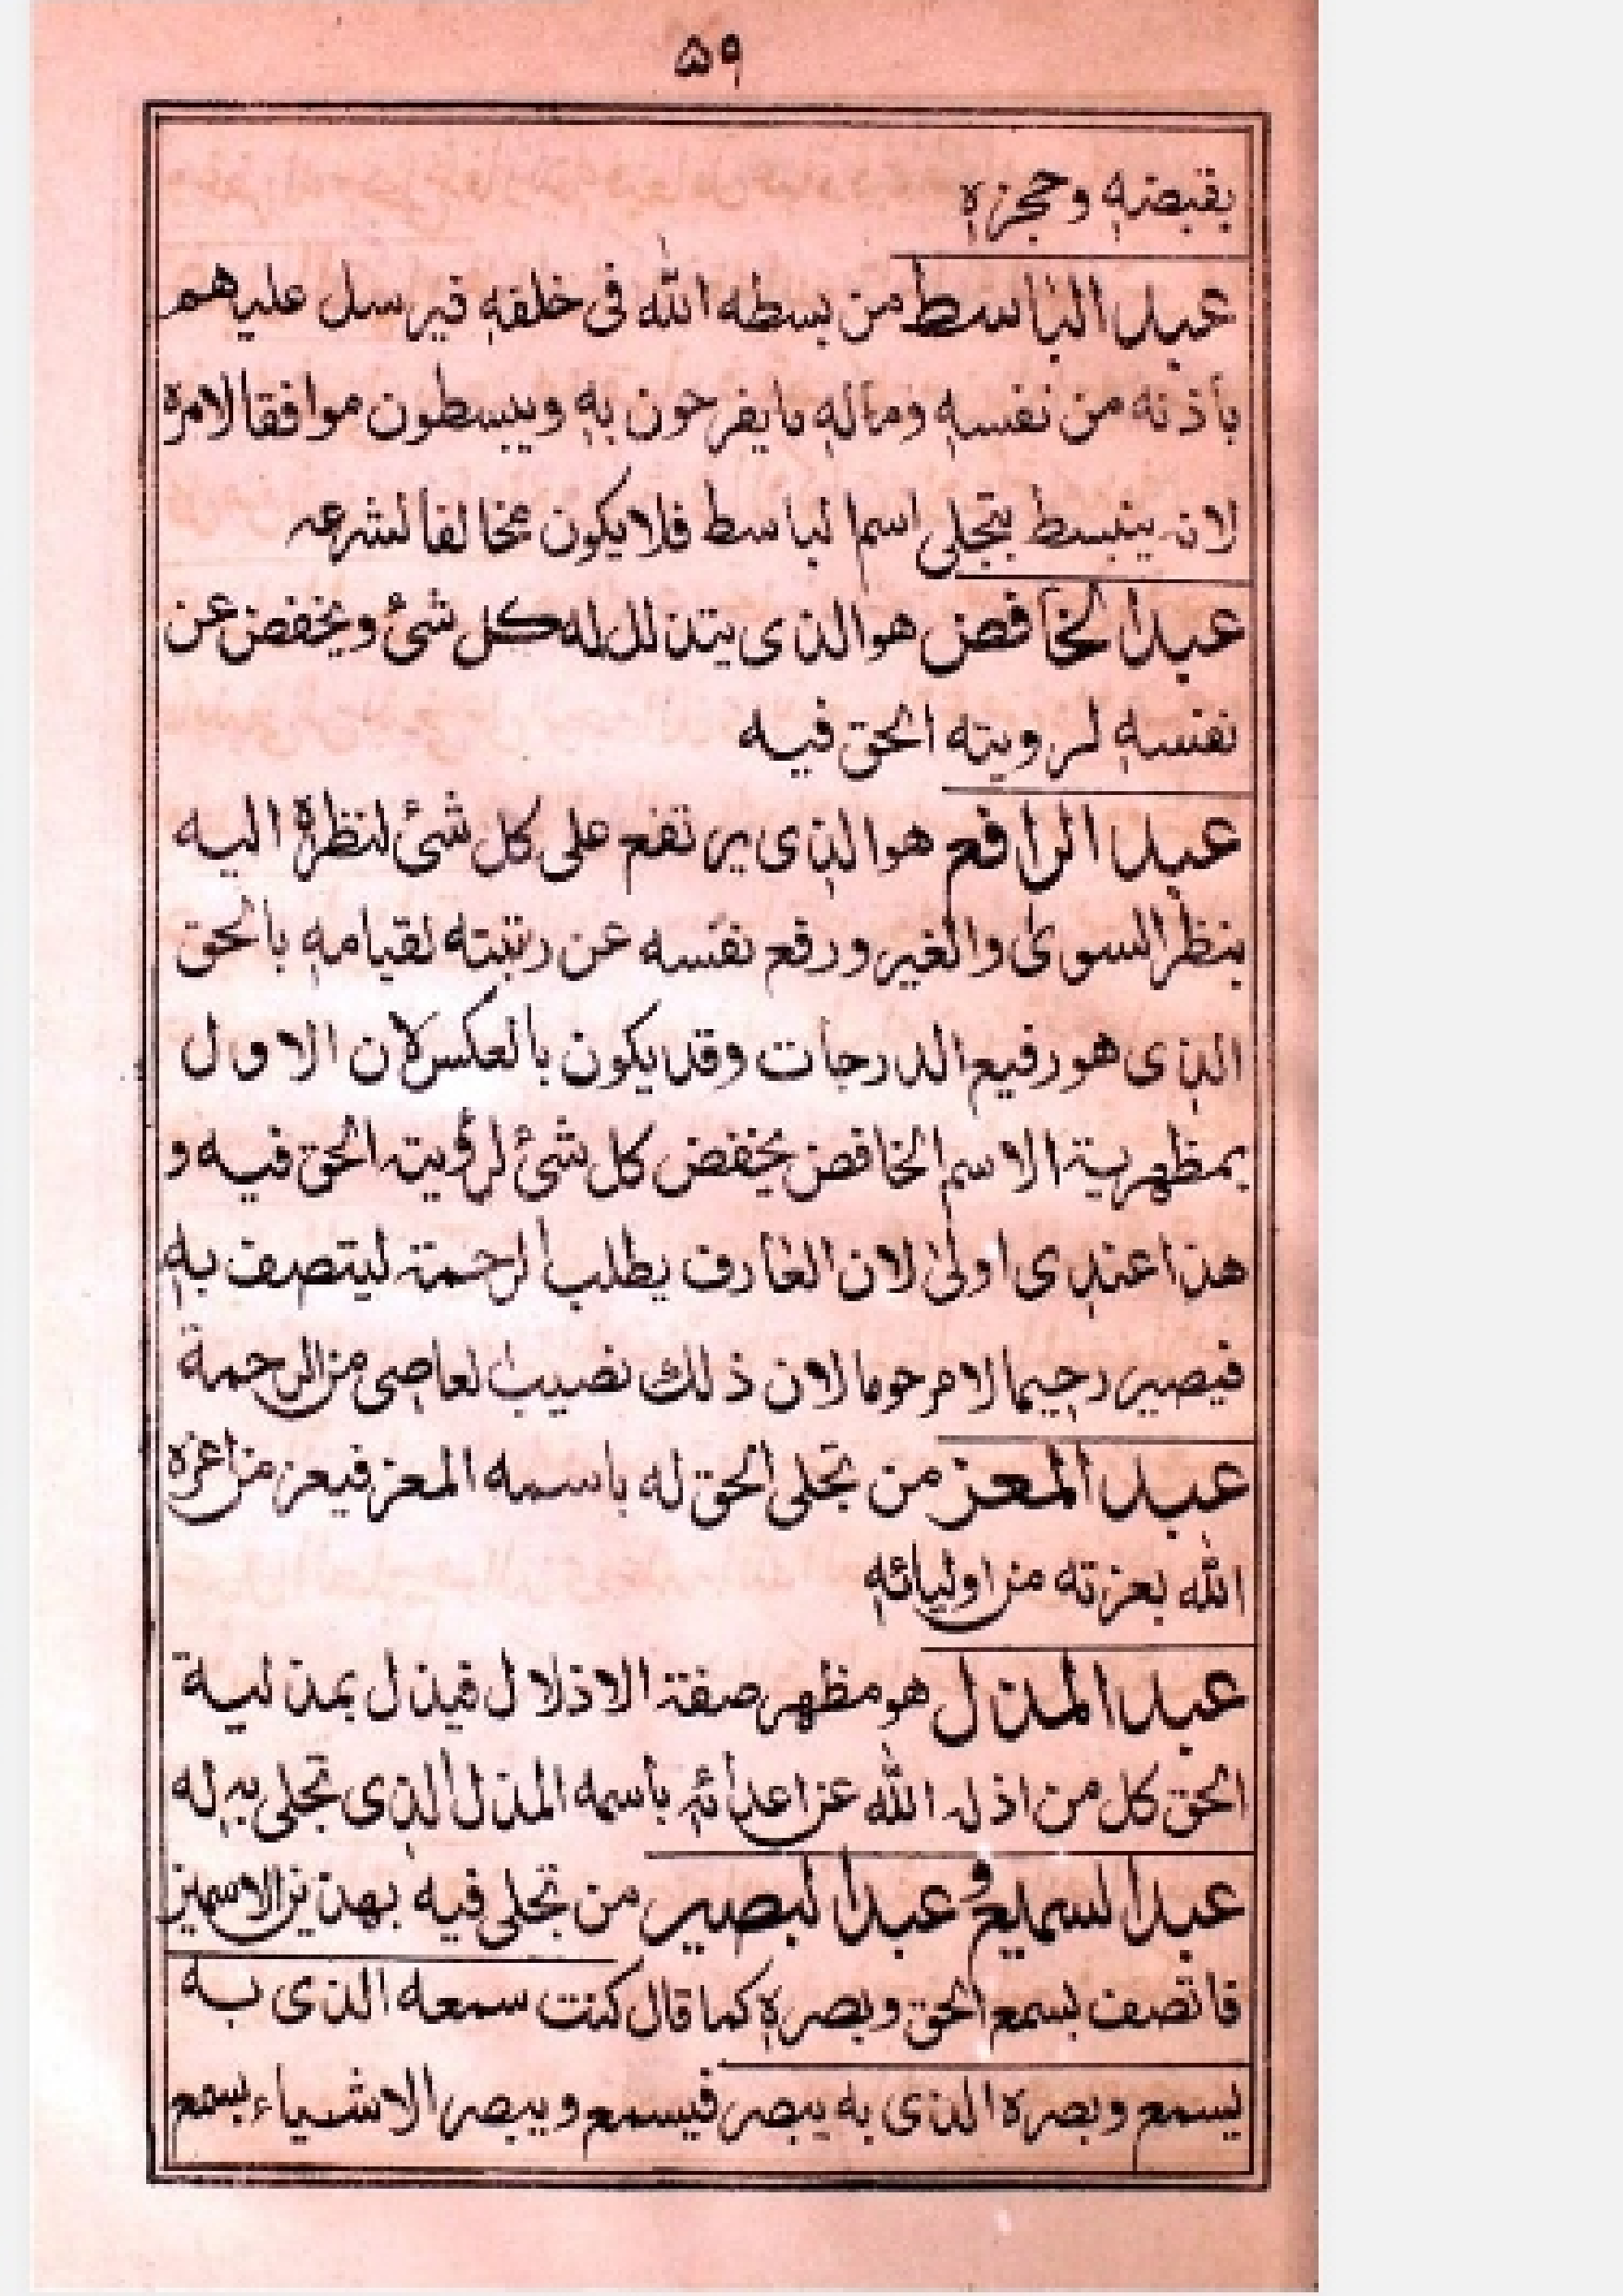 ۵۹
بقبضہٖ وحجزہٖ
عبد الباسط من بسطه اللّٰه فی خلقهٖ فیرسل علیاهم
بأذنه من نفسهٖ ومالهٖ مایفرحون بهٖ ویبسطون موافقا لامره
لانہ ینبسط بتجلی اسم الباسط فلایکون مخالفا لشرعہ
عبد الخافض هوالذی یتذلل له کل شئ ویخفض عن
نفسهٖ لرویته الحق فیه
عبد الرافع هوالذی یرتفع علی کل شئ لنظره الیه
بنظر السوی والغیر ورفع نفسه عن رتبته لقیامهٖ بالحق
الذی هورفیع الدرجات وقدیکون بالعکس لان الاول
بمظهریة الاسم الخافض یخفض کل شئ لرؤیتہ الحق فیه و
هذا عندی اولیٰ لان العارف یطلب الرحمة لیتصف بهٖ
فیصیر رحیما لامرحوما لان ذلك نصیب العاصی من الرحمة
عبد المعز من تجلی الحق له باسمه المعز فیعز من اعزه
اللّٰه بعزته من اولیائهٖ
عبد المذل هومظهر صفة الاذلال فیذل بمذلیة
الحق کل من اذله اللّٰه عن اعدائہٖ بأسمه المذل الذی تجلی بہٖ له
عبد السمیع وعبد البصیر من تجلی فیه بهذین الاسمین
فاتصف بسمع الحق وبصرہٖ کما قال کنت سمعه الذی به
یسمع وبصره الذی به یبصر فیسمع ویبصر الاشیاء بسمع